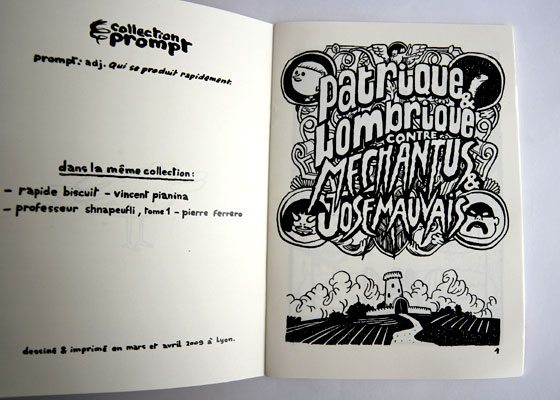 collection
prompt
prompt: adj. Qui se produit rapidement.
dans la même collection:
- rapide biscuit - vincent pianina
- professeur shnapeufli, tome 1 - pierre ferrero
dessiné & imprimé en mars et avril 2009 à Lyon.
patrique
&
Lombrique
contre
MECHANTUS
&
JOSE MAUVAIS
1